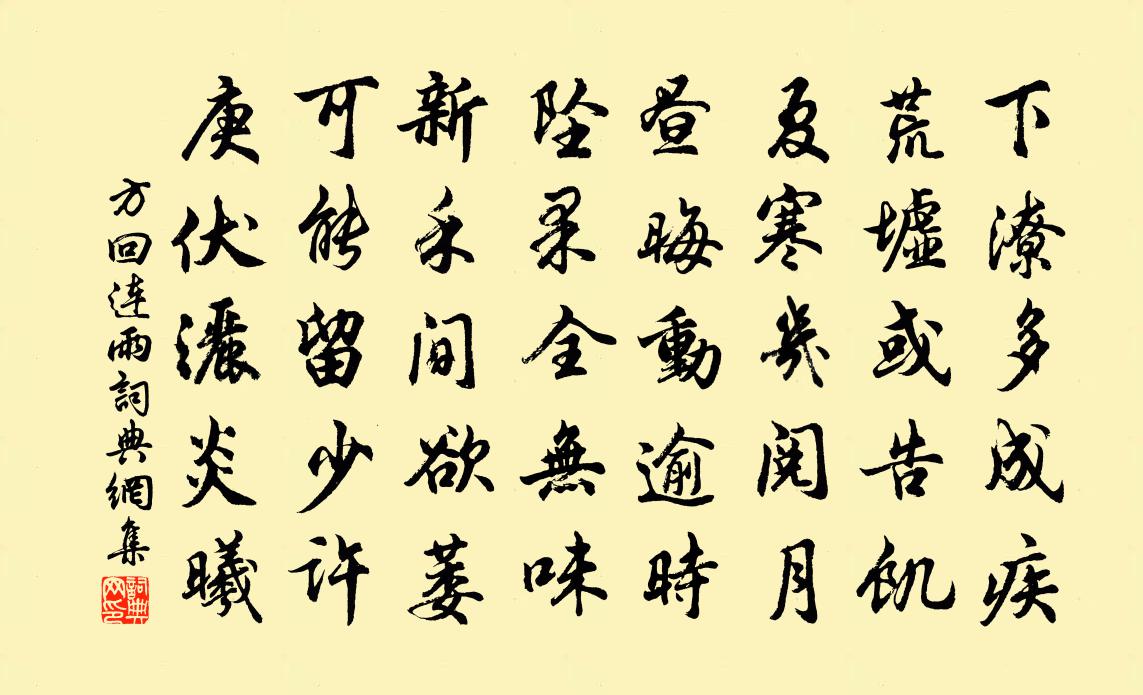 下潦多成疾
荒墟或告飢
夏寒幾閱月
昼晦動逾時
坠果全無味
新禾間欲萎
可能留少許
庚伏灑炎曦
方回連雨詞典網集
詞典网印